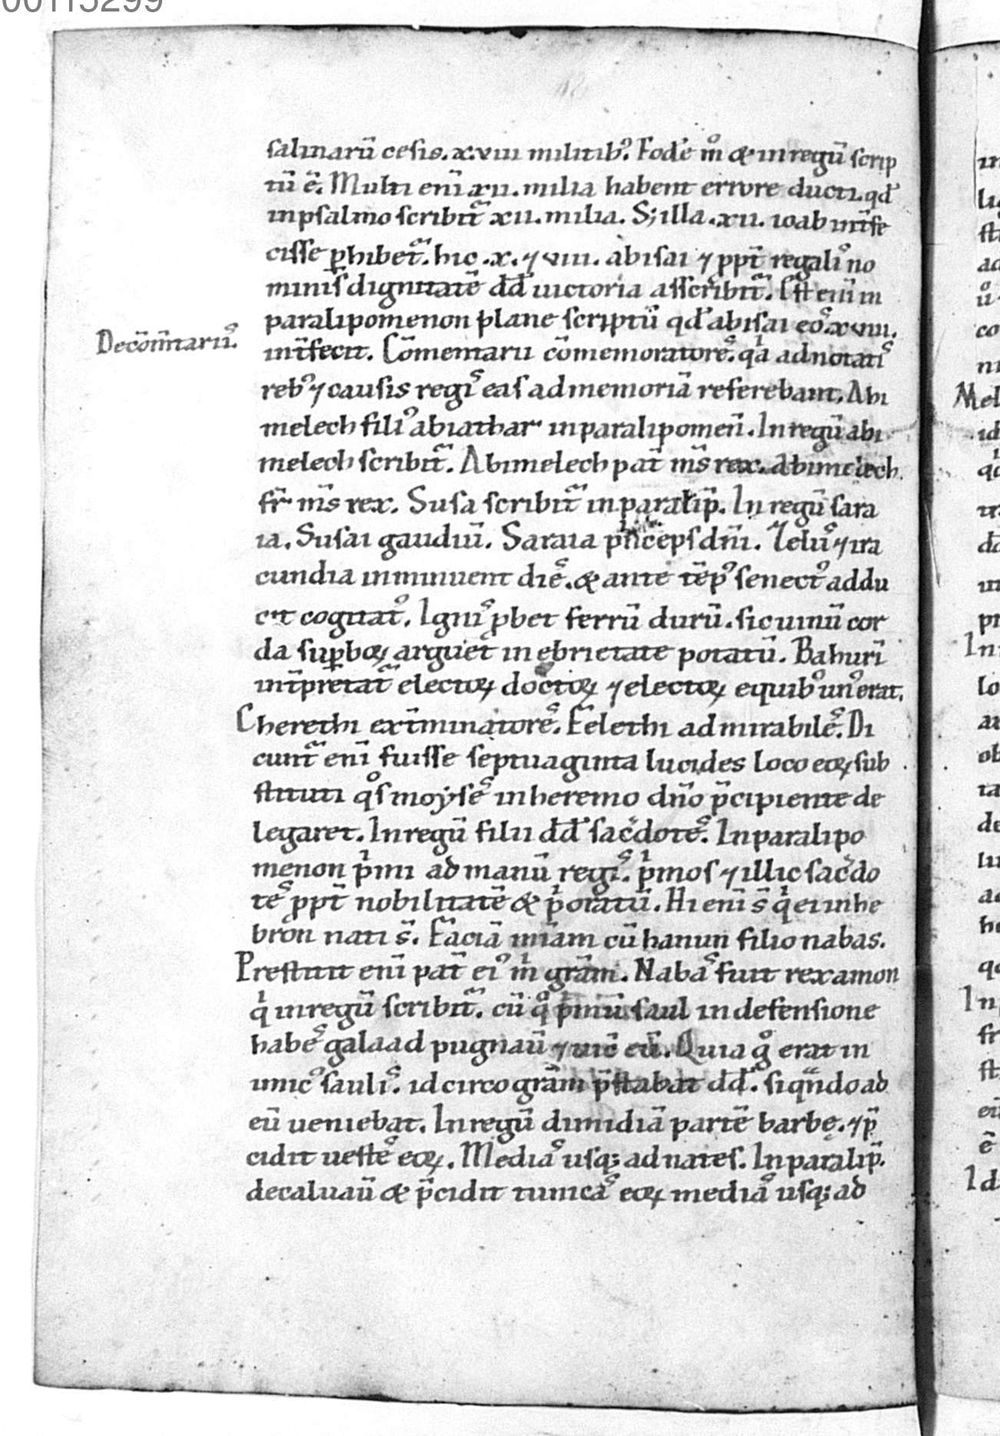 00115299
salinarũ cesis. x. viii militib᷒. Eode͂ mͦ & in regũ scrip
tũ ẽ. Multi eni͂ xii. milia habent errore ducti. qd̓
in psalmo scribit᷒ xii. milia. S; illa. xii. ioab int͂fe
cisse ꝑhibet᷒. hic .x. ⁊ viii. abisai ⁊ ꝓpt͂ regali᷒ no
minis dignitatẽ dd̃ uictoria asscribit᷒. Est eni͂ in
paralipomenon plane scriptũ qd̓ abisai eo᷒ xviii.
Deco͂m̃tarii᷒.
int͂fecit. Co͂mentarii co͂memoratore᷒. qͥa adnotati᷒
reb᷒ ⁊ causis regi᷒ eas ad memoriã referebant. Abi
melech fili᷒ abiathar in paralipomen̄. In regũ abi
melech scribit᷒. Abimelech pat͂ m̃s rex. abimelech
fr̃ m̃s rex. Susa scribit᷒ in paralip̃. In regũ sara
ia. Susai gaudiũ. Saraia pͥnceps dn̄i. Zelu᷒ ⁊ ira
cundia inminuent die᷒. & ante te͂p᷒ senect᷒ addu
cit cogitat᷒. Igni᷒ ꝓbet ferrũ durũ. sic uinũ cor
da suꝑboꝝ arguet in ebrietate potatũ. Bahuri͂
int͂pretat᷒ electoꝝ doctoꝝ ⁊ electoꝝ e quib᷒ un᷒ erat.
Cherethi ext͂minatore᷒. Felethi admirabile᷒. Di
cunt᷒ eni͂ fuisse septuaginta iudices loco eoꝝ sub
stituti qͦs moyse᷒ in heremo dn̄o p̃cipiente de
legaret. In regũ filii dd̃ sac̃dote᷒. In paralipo
menon pͥmi ad manũ regi᷒. pͥmos ⁊ illic sac̃do
te᷒ ꝓpt͂ nobilitatẽ & pͥoratũ. Hi eni͂ s̃ qͥ ei in he
bron nati s̃. Faciã miãm cũ hanun filio nabas.
Prestitit eni͂ pat͂ ei᷒ mͥ grãm. Naba᷒ fuit rex amon
qͥ in regũ scribit᷒. cũ qͦ pͥmũ saul in defensione
habe᷒ galaad pugnaũ ⁊ uic̃ eũ. Quia gͦ erat in
imic᷒ sauli᷒. idcirco grãm p̃stabat dd̃. siqᷓndo ad
eũ ueniebat. In regũ dimidiã partẽ barbę. ⁊ p̃
cidit ueste᷒ eoꝝ. Media᷒ usq; ad nates. In paralip̃.
decaluaũ & p̃cidit tunica᷒ eoꝝ media᷒ usq; ad